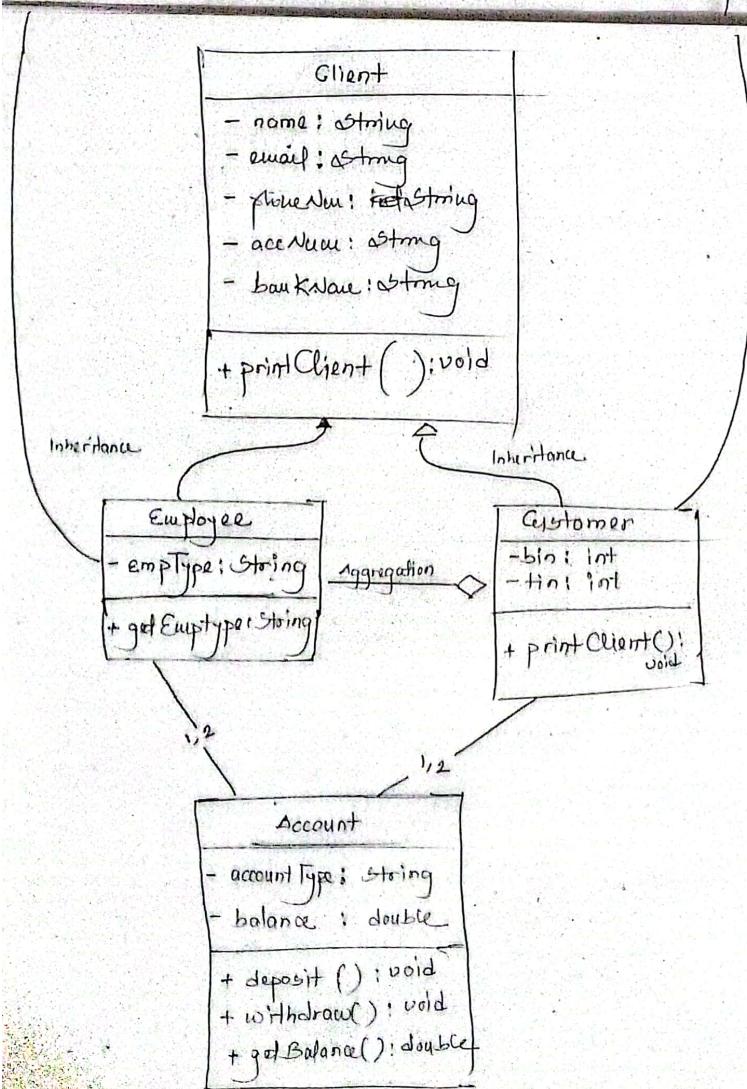 Client
- name : String
- email : String
- phoneNum : String
- accNum : String
- bankName : String
+ printClient ( ) : void
Inheritance
Inheritance
Employee
- empType : String
+ getEmptype : String
Aggregation
Customer
- bin : int
- tin : int
+ printClient() :
void
1,2
1,2
Account
- accountType : String
- balance : double
+ deposit () : void
+ withdraw() : void
+ getBalance() : double